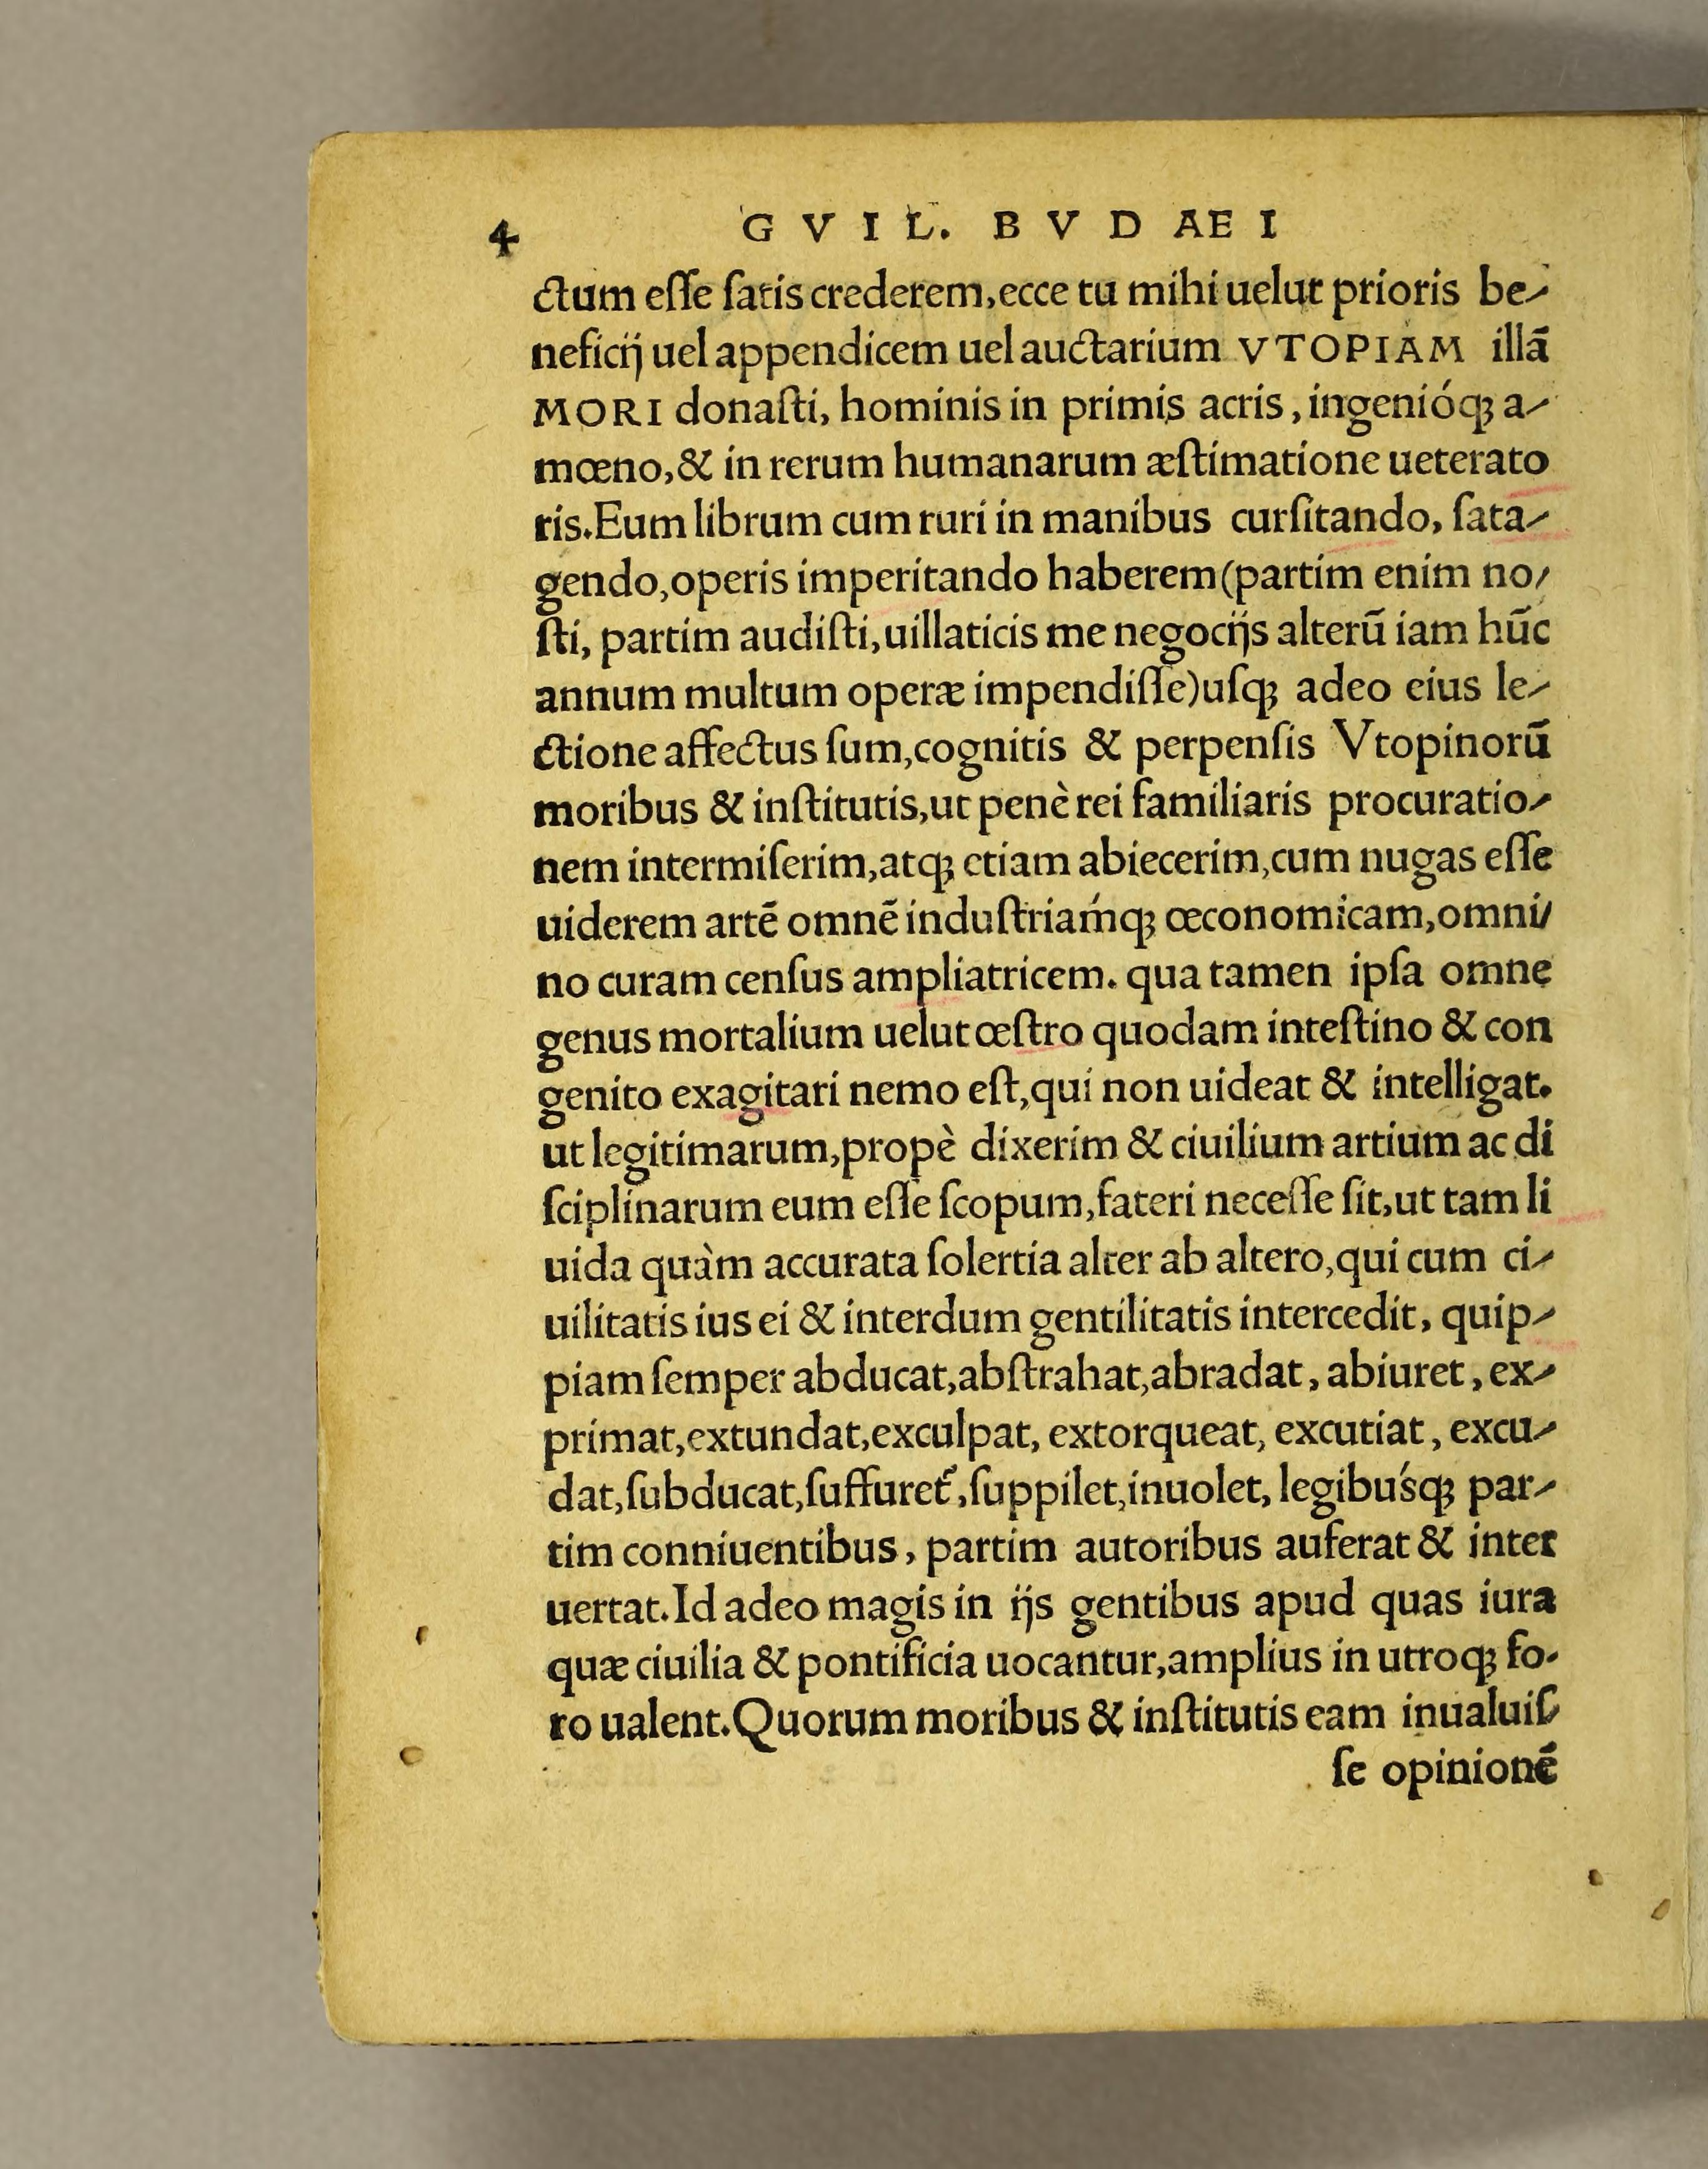 4 GVIL. BVDAEI
ctum eſſe ſatis crederem,ecce tu mihi uelut prioris be-
neficij uel appendicem uel auctarium VTOPIAM illā
MORI donaſti, hominis in primis acris, ingenióq; a-
mœno,& in rerum humanarum æſtimatione ueterato
ris.Eum librum cum ruri in manibus curſitando, ſata-
gendo,operis imperitando haberem(partim enim no-
ſti, partim audiſti,uillaticis me negocijs alterū iam hūc
annum multum operæ impendiſſe)uſq; adeo eius le-
ctione affectus ſum,cognitis & perpenſis Vtopinorū
moribus & inſtitutis,ut penè rei familiaris procuratio-
nem intermiſerim,atq; etiam abiecerim,cum nugas eſſe
uiderem artē omnē induſtriaḿq; œconomicam,omni-
no curam cenſus ampliatricem. qua tamen ipſa omne
genus mortalium uelut œſtro quodam inteſtino & con
genito exagitari nemo eſt,qui non uideat & intelligat.
ut legitimarum,propè dixerim & ciuilium artium ac di
ſciplinarum eum eſſe ſcopum,fateri neceſſe ſit,ut tam li
uida quàm accurata ſolertia alter ab altero,qui cum ci-
uilitatis ius ei & interdum gentilitatis intercedit, quip-
piam ſemper abducat,abſtrahat,abradat, abiuret, ex-
primat,extundat,exculpat, extorqueat, excutiat, excu-
dat,ſubducat,ſuffuret᷑,ſuppilet,inuolet, legibuśq; par-
tim conniuentibus, partim autoribus auferat & inter
uertat.Id adeo magis in ijs gentibus apud quas iura
quæ ciuilia & pontificia uocantur,amplius in utroq; fo-
ro ualent.Quorum moribus & inſtitutis eam inualuiſ-
ſe opinionē